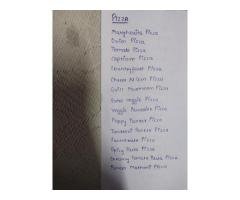 PIZZA
Margherita Pizza
Onion Pizza
Tomato Pizza
Capsicum Pizza
Countryfeast Pizza
Cheese N Corn Pizza
Mushroom Pizza
Veggie Pizza
Veggie Paradise Pizza
Peppy Paneer Pizza
Tandoori Paneer Pizza
Farmhouse Pizza
Spicy Pizza
Creamy Tomato Pasta Pizza
Paneer Makhani Pizza